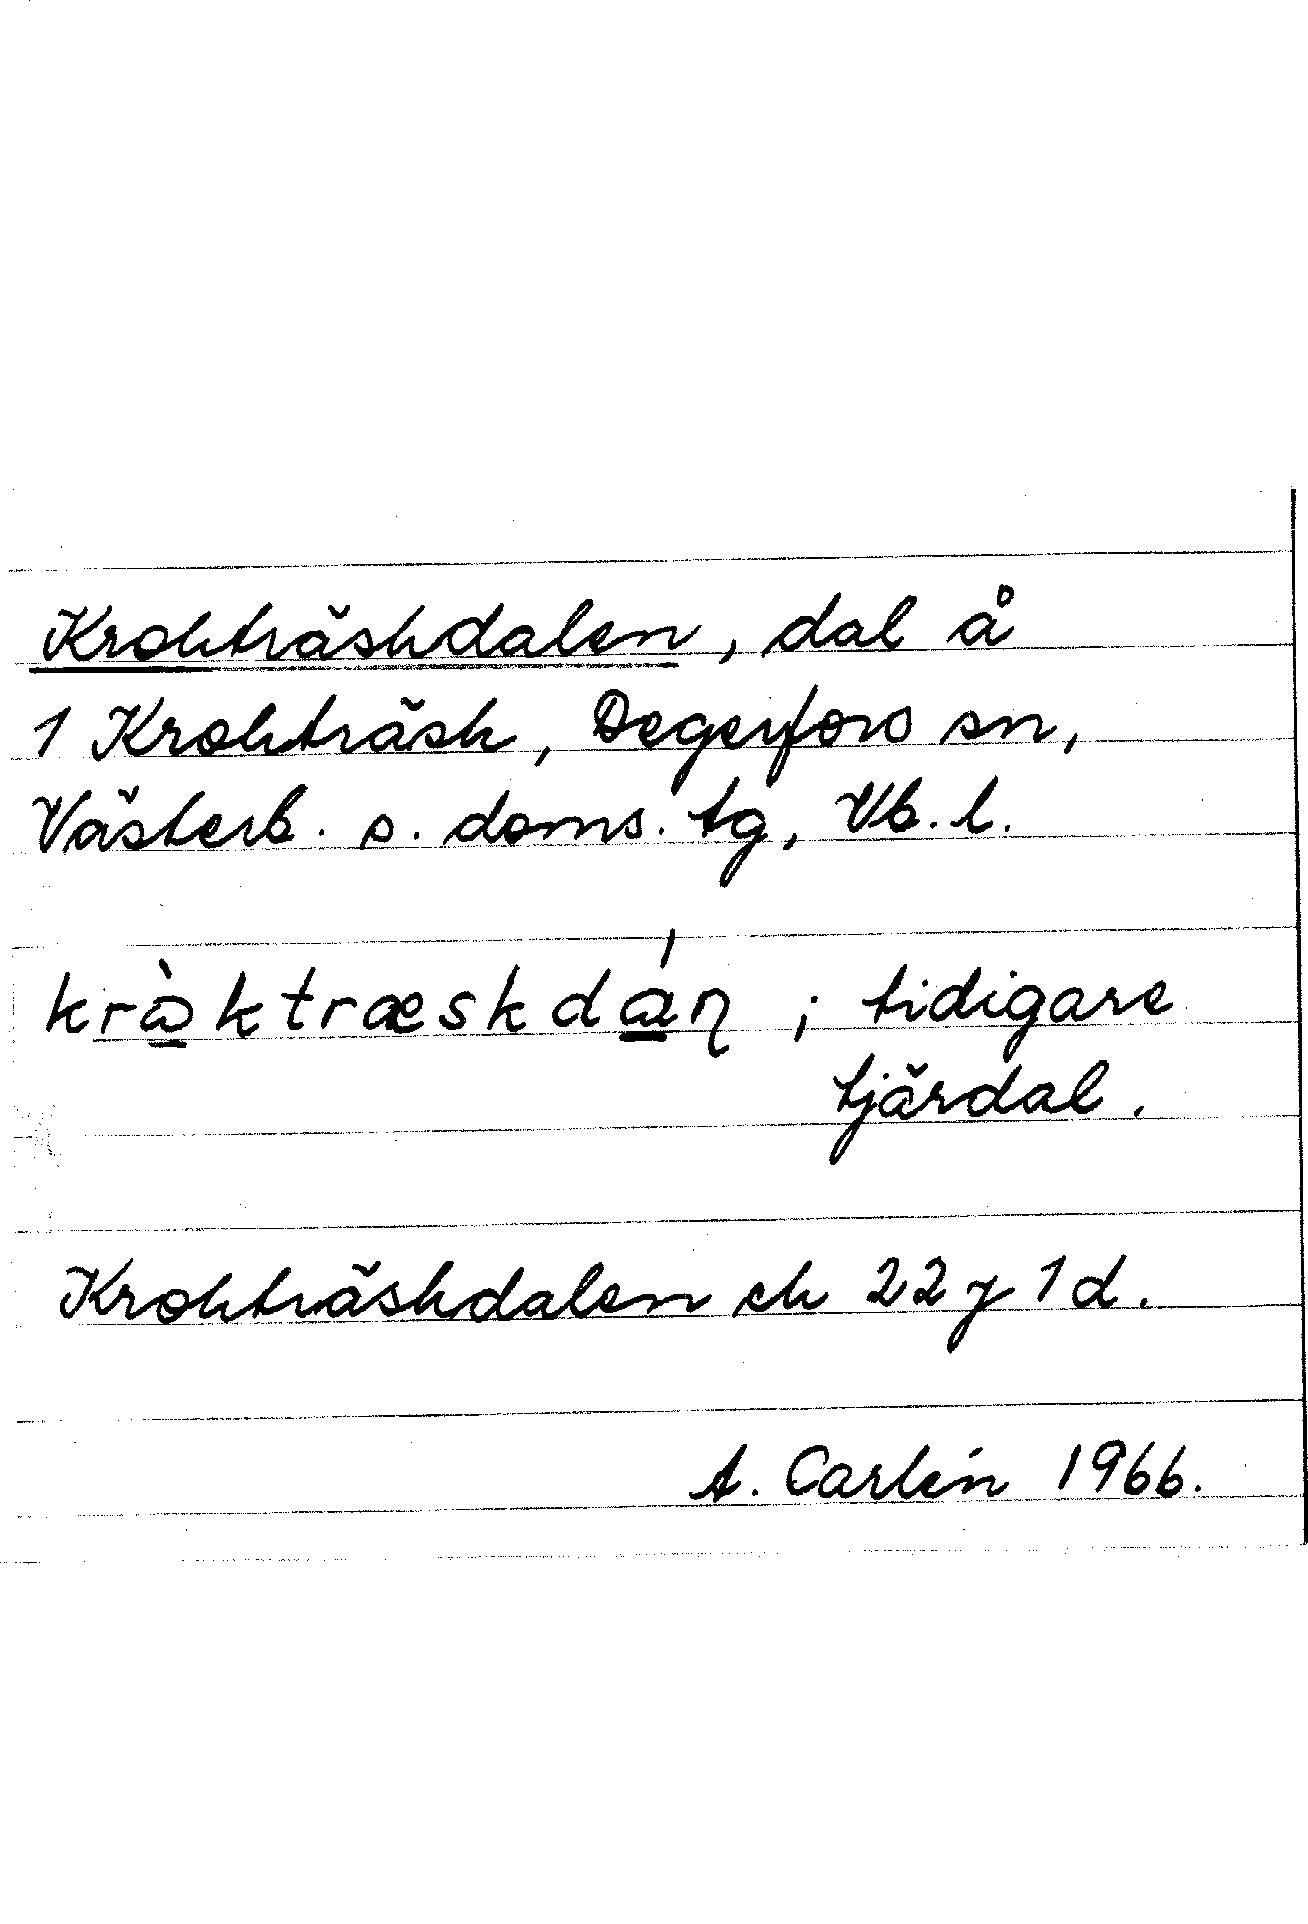 Krokträskdalen, dal å
1 Krokträsk, Degerfors sn,
Västerb. s. doms. tg, Vb. l.
kràktræskdán ; tidigare
tjärdal.
Krokträskdalen ek 22 j 1 d.
A. Carlén 1966.